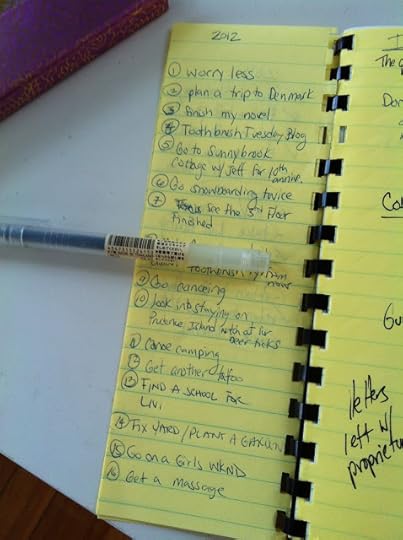 2012
1 worry less
2 plan a trip to Denmark
3 finish my novel
4 Toothbrush Tuesday Blog
5 Go to Sunnybrook
Cottage w/ Jeff for 10th
anniv.
6 Go snowboarding twice
7 See the 3rd floor
finished
9 Go canoeing
10 look into staying on
Prudence Island
deer ticks
11 Canoe camping
12 Get another tattoo
13 FIND A SCHOOL FOR
LIV!
14 FIX YARD / PLANT A
15 Go on a Girls WKND
16 Get a massage
letters
left w/